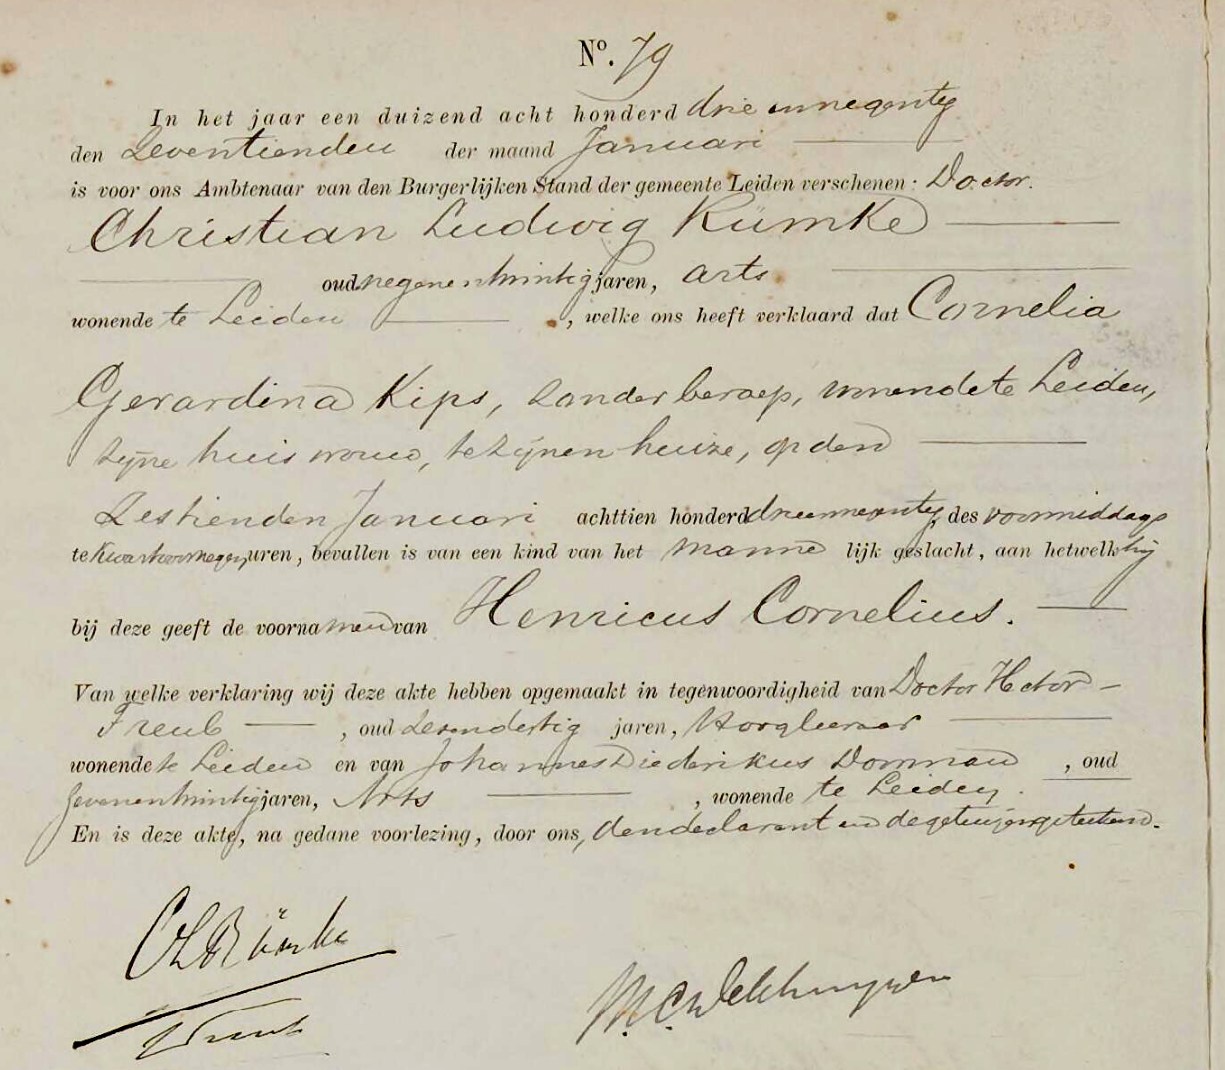 Nº. 79
In het jaar een duizend acht honderd drie en negentig
den Zeventienden der maand Januari
is voor ons Ambtenaar van den Burgerlijken Stand der gemeente Leiden verschenen: Doctor.
Christian Ludwig Rümke
oud negenentwintig jaren, arts
wonende te Leiden, welke ons heeft verklaard dat Cornelia
Gerardina Kips, zonder beroep, wonende te Leiden,
zijne huisvrouw, te zijnen huize, op den
Zestienden Januari achttien honderd drie en negentig, des voormiddags
te kwart voor negen uren, bevallen is van een kind van het manne lijk geslacht, aan hetwelk hij
bij deze geeft de voornamen van Henricus Cornelius.
Van welke verklaring wij deze akte hebben opgemaakt in tegenwoordigheid van Doctor Hector
Treub, oud zesendertig jaren, Hoogleeraar
wonende te Leiden en van Johannes Diederikus Dorman, oud
zevenentwintig jaren, Arts, wonende te Leiden.
En is deze akte, na gedane voorlezing, door ons, den declarant en de getuigen geteekend.
CLRümke
Treub